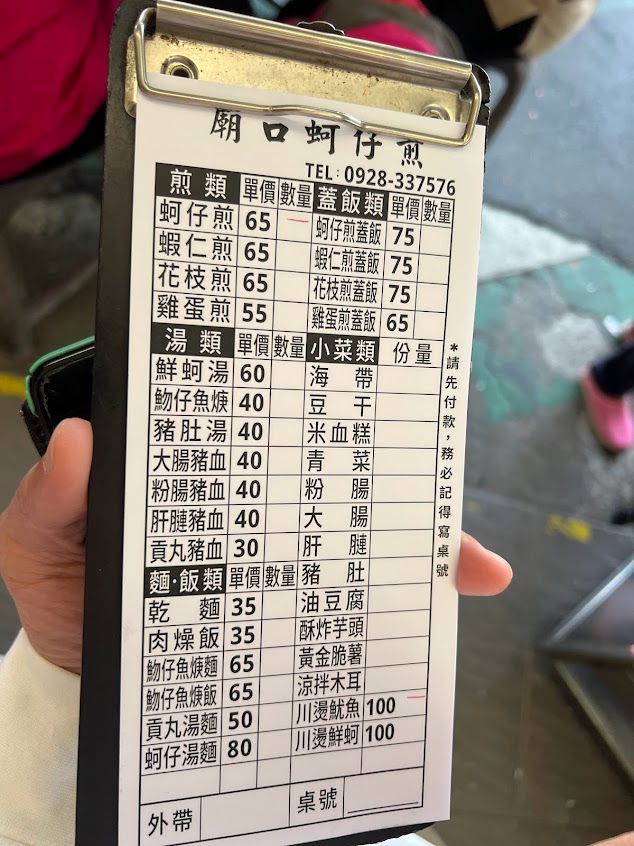 廟口蚵仔煎
TEL:0928-337576
煎類 單價 數量 蓋飯類 單價 數量
蚵仔煎 65 蚵仔煎蓋飯 75
蝦仁煎 65 蝦仁煎蓋飯 75
花枝煎 65 花枝煎蓋飯 75
雞蛋煎 55 雞蛋煎蓋飯 65
湯類 單價 數量 小菜類 份量
鮮蚵湯 60 海帶
魩仔魚焿 40 豆干
豬肚湯 40 米血糕
大腸豬血 40 青菜
粉腸豬血 40 粉腸
肝膗豬血 40 大腸
貢丸豬血 30 肝膗
麵·飯類 單價 數量 豬肚
乾麵 35 油豆腐
肉燥飯 35 酥炸芋頭
魩仔魚焿麵 65 黃金脆薯
魩仔魚焿飯 65 涼拌木耳
貢丸湯麵 50 川燙魷魚 100
蚵仔湯麵 80 川燙鮮蚵 100
外帶 桌號
*請先付款，務必記得寫桌號